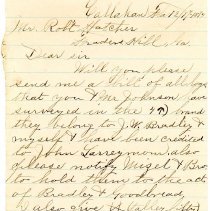 Callahan Fla
Mr. Robt Hatcher
Traders Hill, Ga.
Dear sir
Will you please
send me a bill of all logs
that you & Mr Johnson have
surveyed in the brand
they belong to J. W. Bradley &
myself & have been credited
to John
please notify & Bro
to hold them to the act
of Bradley & Goodbread.
I also give